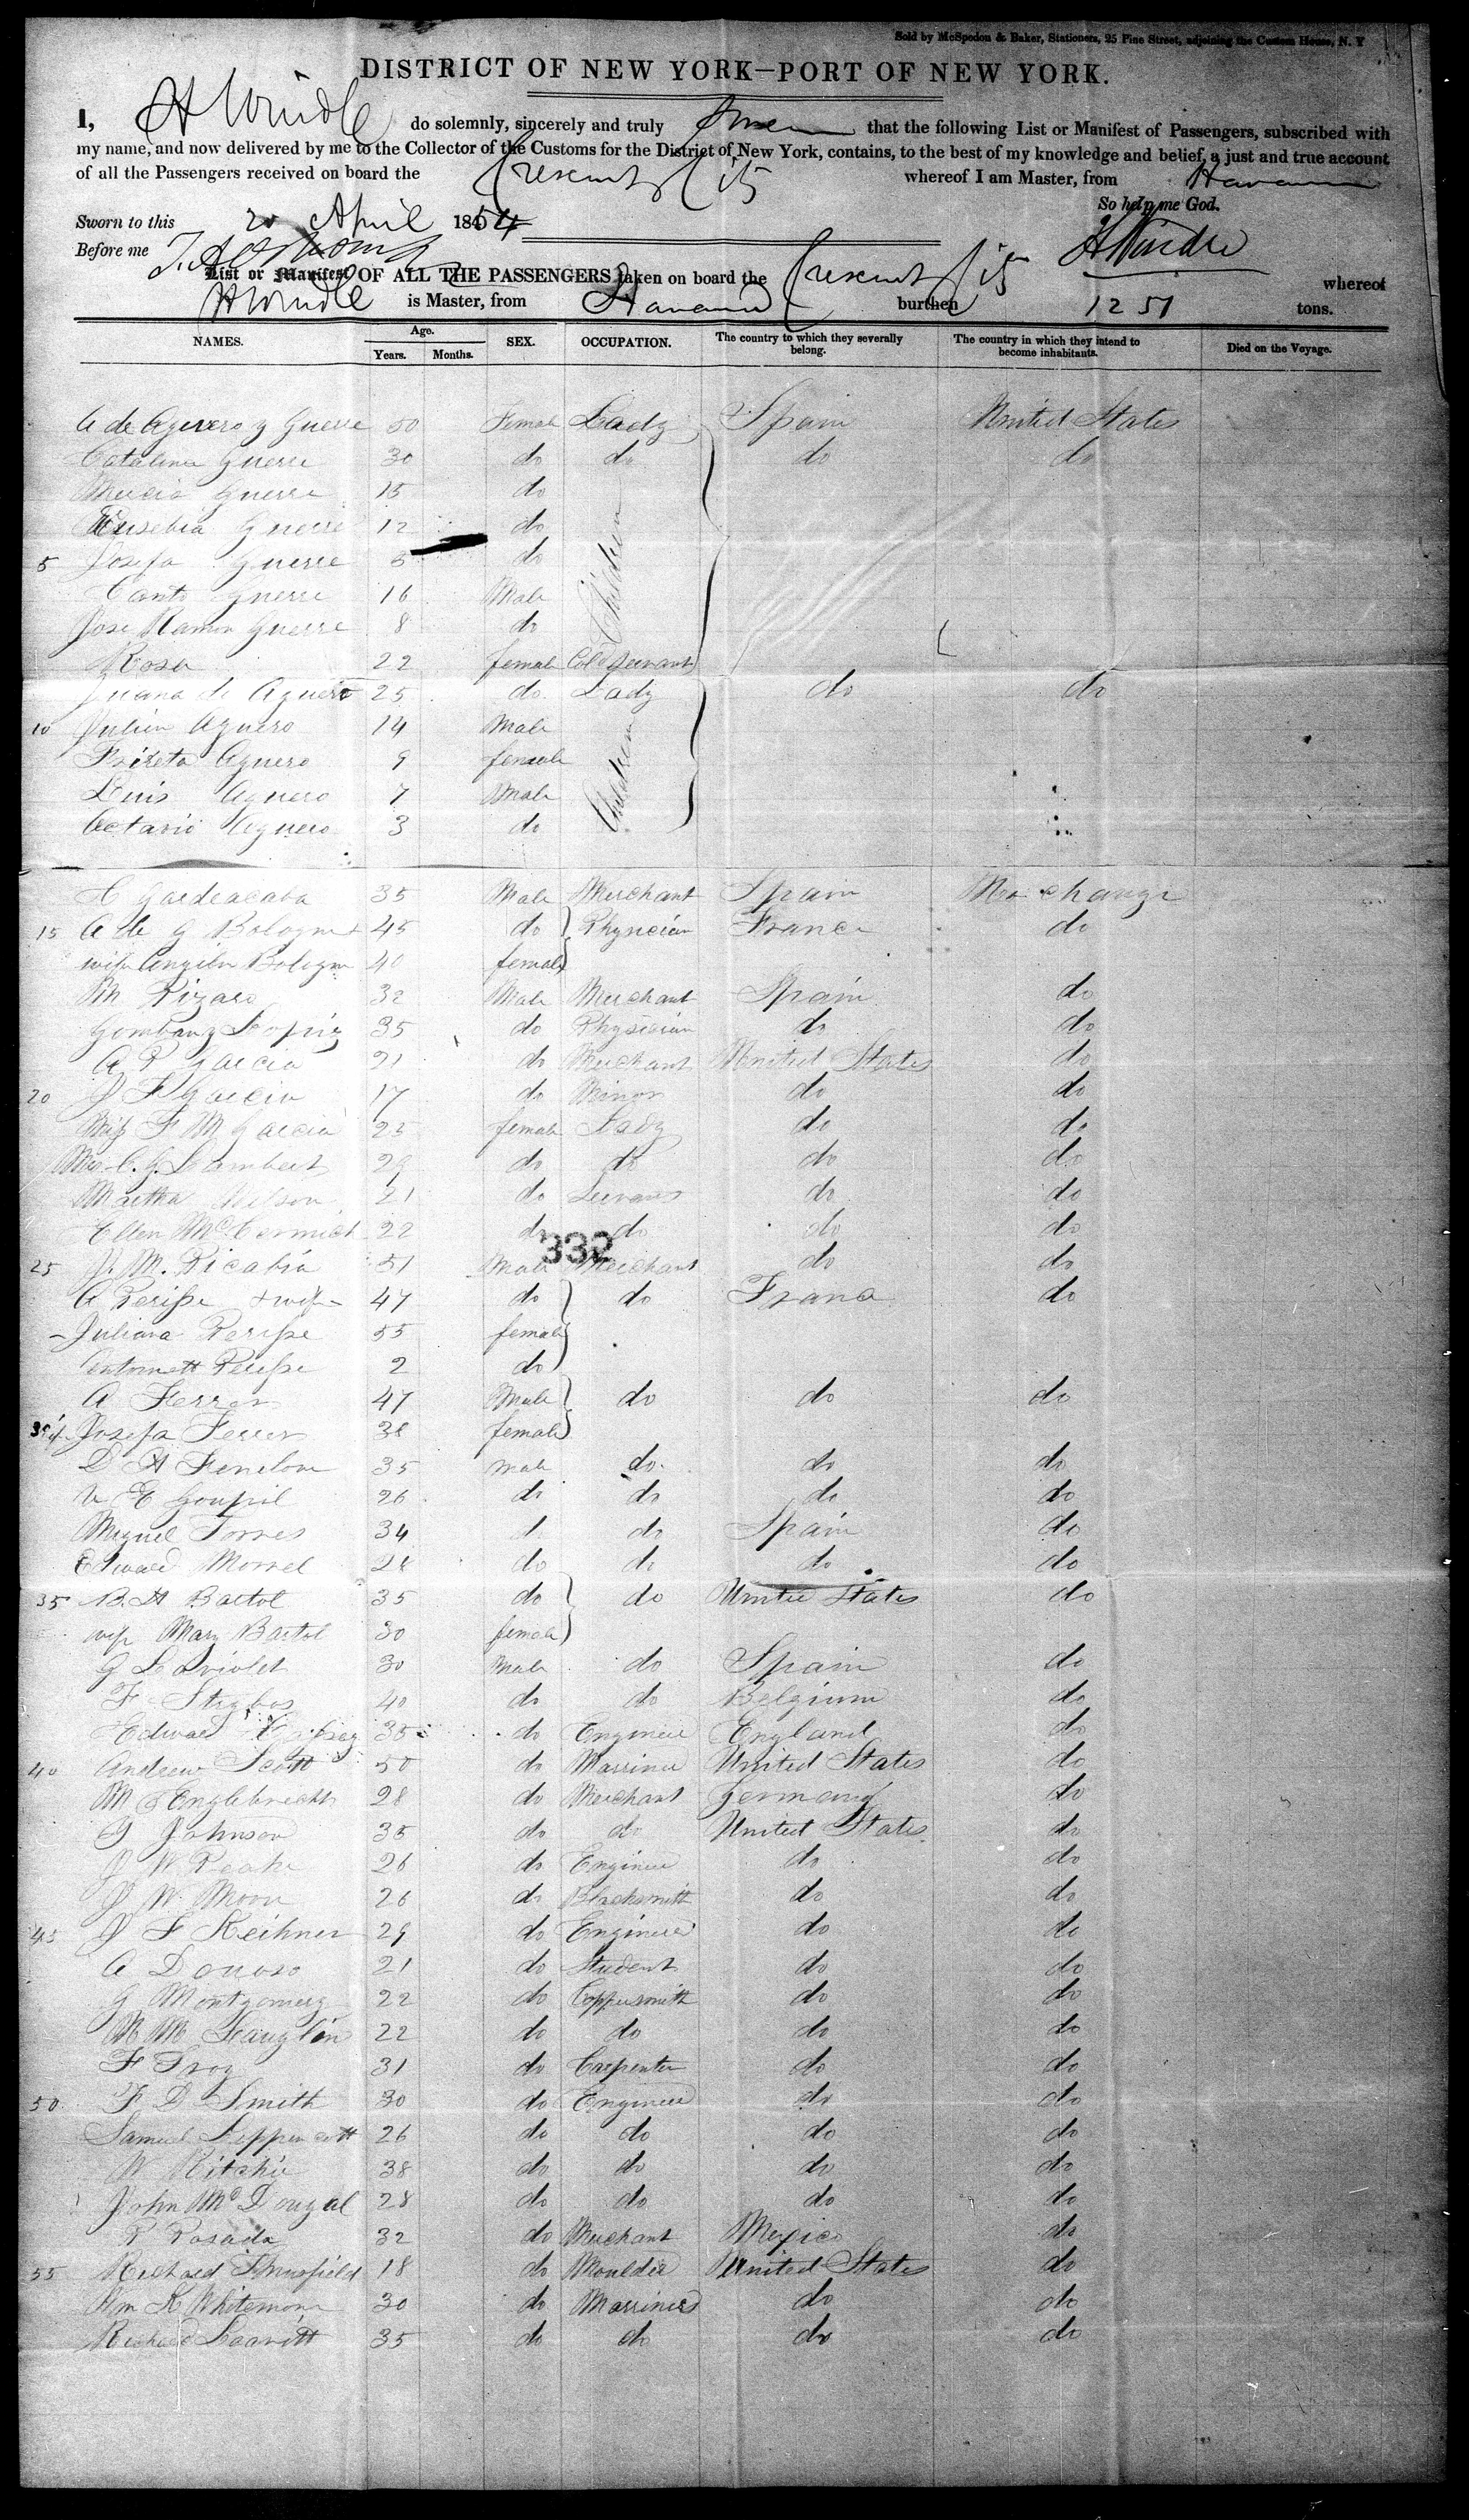 Sold by McSpedon & Baker, Stationers, 25 Pine Street, adjoining the Custom House, N. Y
DISTRICT OF NEW YORK—PORT OF NEW YORK.
I, H Windle do solemnly, sincerely and truly swear that the following List or Manifest of Passengers, subscribed with
my name, and now delivered by me to the Collector of the Customs for the District of New York, contains, to the best of my knowledge and belief, a just and true account
of all the Passengers received on board the Crescent City whereof I am Master, from Havana
So help me God.
Sworn to this 20 April 1854
Before me H Windle
List or Manifest OF ALL THE PASSENGERS taken on board the Crescent City whereof
H Windle is Master, from Havana burthen 1251 tons.
NAMES. Age. Years. Months. SEX. OCCUPATION. The country to which they severally belong. The country in which they intend to become inhabitants. Died on the Voyage.
50 Female Lady Spain United States
Catalina Guerre 30 do do do do
Guerre 15 do
Eusebia Guerre 12 do
5 Josefa Guerre 5 do
Guerre 16 Male
Jose Ramon Guerre 8 do
Children
Rosa 22 female Cold Servant
Juana de Aguero 25 do Lady do do
10 Julian Aguero 14 Male
Aguero 9 female
Luis Aguero 7 Male
Aguero 3 do
Children
35 Male Merchant Spain
15 A de G Bologna + 45 do Physician France do
wife Bologna 40 female
M Pizaro 32 Male Merchant Spain do
35 do Physician do do
A P Garcia 21 do Merchant United States do
20 J F Garcia 17 do Minor do do
F M Garcia 25 female Lady do do
Mrs C. G. Lambert 29 do do do do
Martha Wilson 21 do do do
Ellen McCormick 22 do do do do
332
25 J. M. Picabia 51 Male Merchant do do
A + wife 47 do do France do
Juliana 55 female
2 do
A Ferrer 47 Male do do do
30 wife Josefa Ferrer 38 female
D H Fenelon 35 male do do do
E Goupil 26 do do do do
Miguel Torres 34 do Spain do
Edward Morrel 28 do do do do
35 B. H Bartol 35 do do United States do
wife Mary Bartol 30 female
G Laviolet 30 Male do Spain do
F 40 do do Belgium do
Edward 35 do Engineer England do
40 Andrew Scott 50 do Marriner United States do
M Englebrecht 28 do Merchant Germany do
G Johnson 35 do do United States do
J W 26 do Engineer do do
J W Moon 26 do Blacksmith do do
45 J F Keihner 29 do Engineer do do
A Donoso 21 do Student do do
G Montgomery 22 do Coppersmith do do
M Mc Lauglin 22 do do do do
F Troy 31 do Carpenter do do
50 F D Smith 30 do Engineer do do
Samuel Lippencott 26 do do do do
W Ritchie 38 do do do do
John McDougal 28 do do do do
R Posada 32 do Merchant Mexico do
55 Richard 18 do Moulder United States do
Wm K Whitemore 30 do Marriners do do
Richard Leavitt 35 do do do do